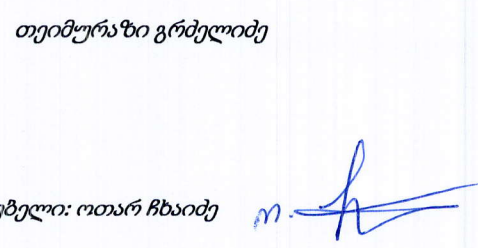 თეიმურაზი გრძელიძე
ოთარ ჩხაიძე